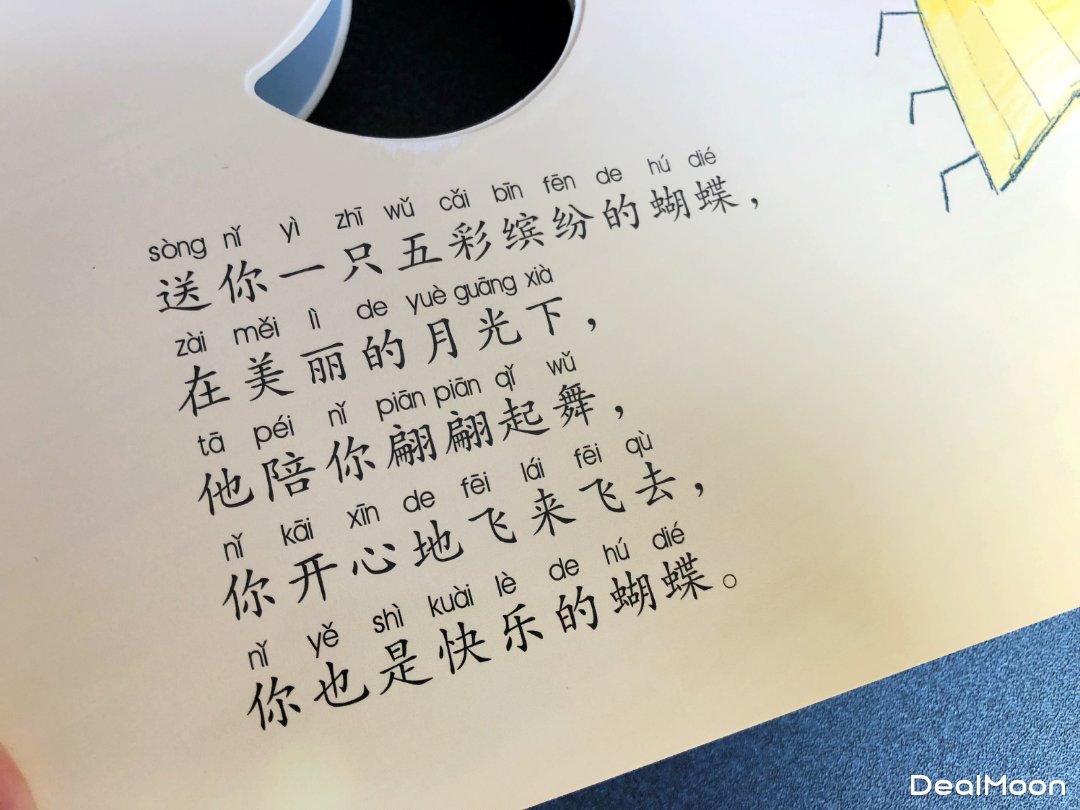 sòng nǐ yì zhī wǔ cǎi bīn fēn de hú dié
送你一只五彩缤纷的蝴蝶，
zài měi lì de yuè guāng xià
在美丽的月光下，
tā péi nǐ piān piān qǐ wǔ
他陪你翩翩起舞，
nǐ kāi xīn de fēi lái fēi qù
你开心地飞来飞去，
nǐ yě shì kuài lè de hú dié
你也是快乐的蝴蝶。
DealMoon